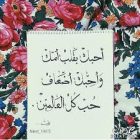 أحبك بقلب أمك
وأحبك أضعاف
حب كل العالمين .